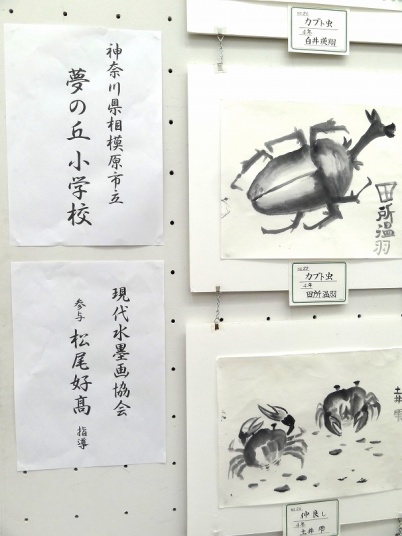 神奈川県相模原市立
夢の丘 小学校
現代水墨画協会
参与 松尾好高 指導
カブト虫
白井瑛翔
カブト虫
田所温羽
田所温羽
土井
仲良し
土井